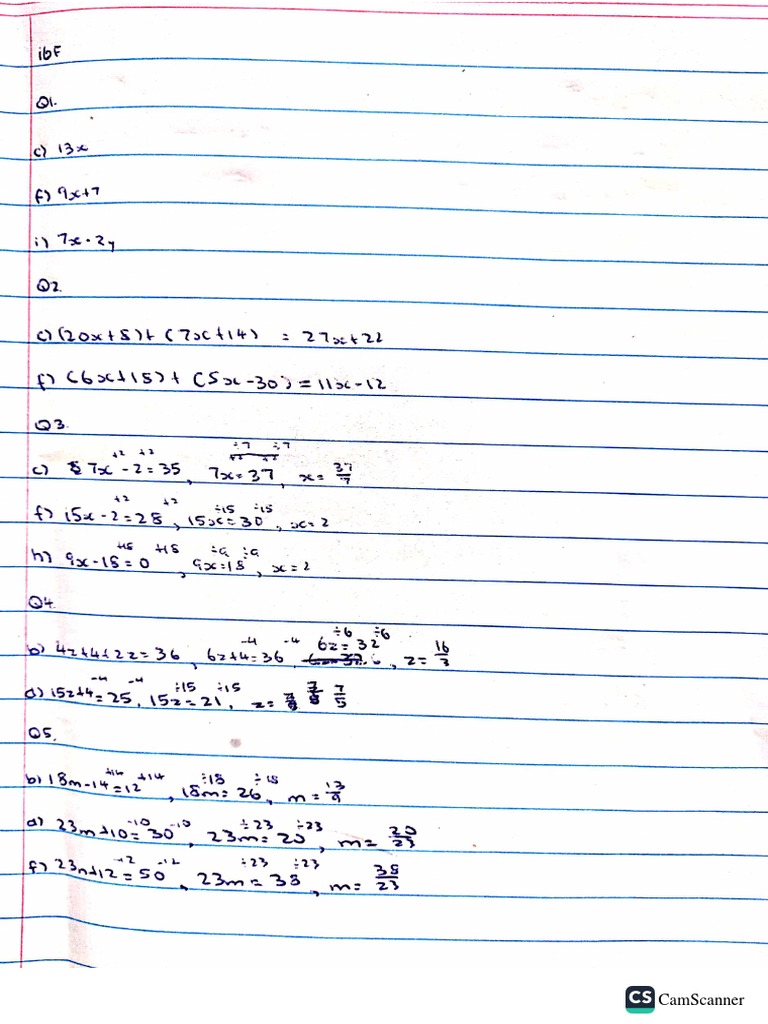 16F
Q1.
c) 13x
f) 9x+7
i) 7x-2y
Q2
c) (20x+8)+(7x+14) = 27x+22
f) (6x+18)+(5x-30) = 11x-12
Q3.
+2 +2 ÷7 ÷7
c) 7x-2=35, 7x=37, x=37/7
+2 +2 ÷15 ÷15
f) 15x-2=28, 15x=30, x=2
+18 +18 ÷9 ÷9
h) 9x-18=0, 9x=18, x=2
Q4.
-4 -4 ÷6 ÷6
b) 4z+4+2z=36, 6z+4=36, 6z=32, z=16/3
-4 -4 ÷15 ÷15
d) 15z+4=25, 15z=21, z= 7/5
Q5.
+14 +14 ÷18 ÷18
b) 18m-14=12, 18m=26, m=13/9
-10 -10 ÷23 ÷23
d) 23m+10=30, 23m=20, m=20/23
-12 -12 ÷23 ÷23
f) 23m+12=50, 23m=38, m=38/23
CS CamScanner